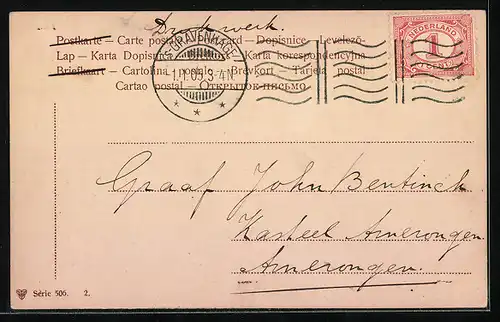 Drukwerk.
Postkarte — Carte postale — Post card — Dopisnice — Levelező-
Lap — Karta Dopisna — Karta korespondencyjna
Briefkaart — Cartolina postale — Brevkort — Tarjeta postal
Cartao postal — Открытое письмо
'S GRAVENHAGE
NEDERLAND
1
1 CENT
Graaf John Bentinck
Kasteel Amerongen.
Amerongen.
Série 506. 2.